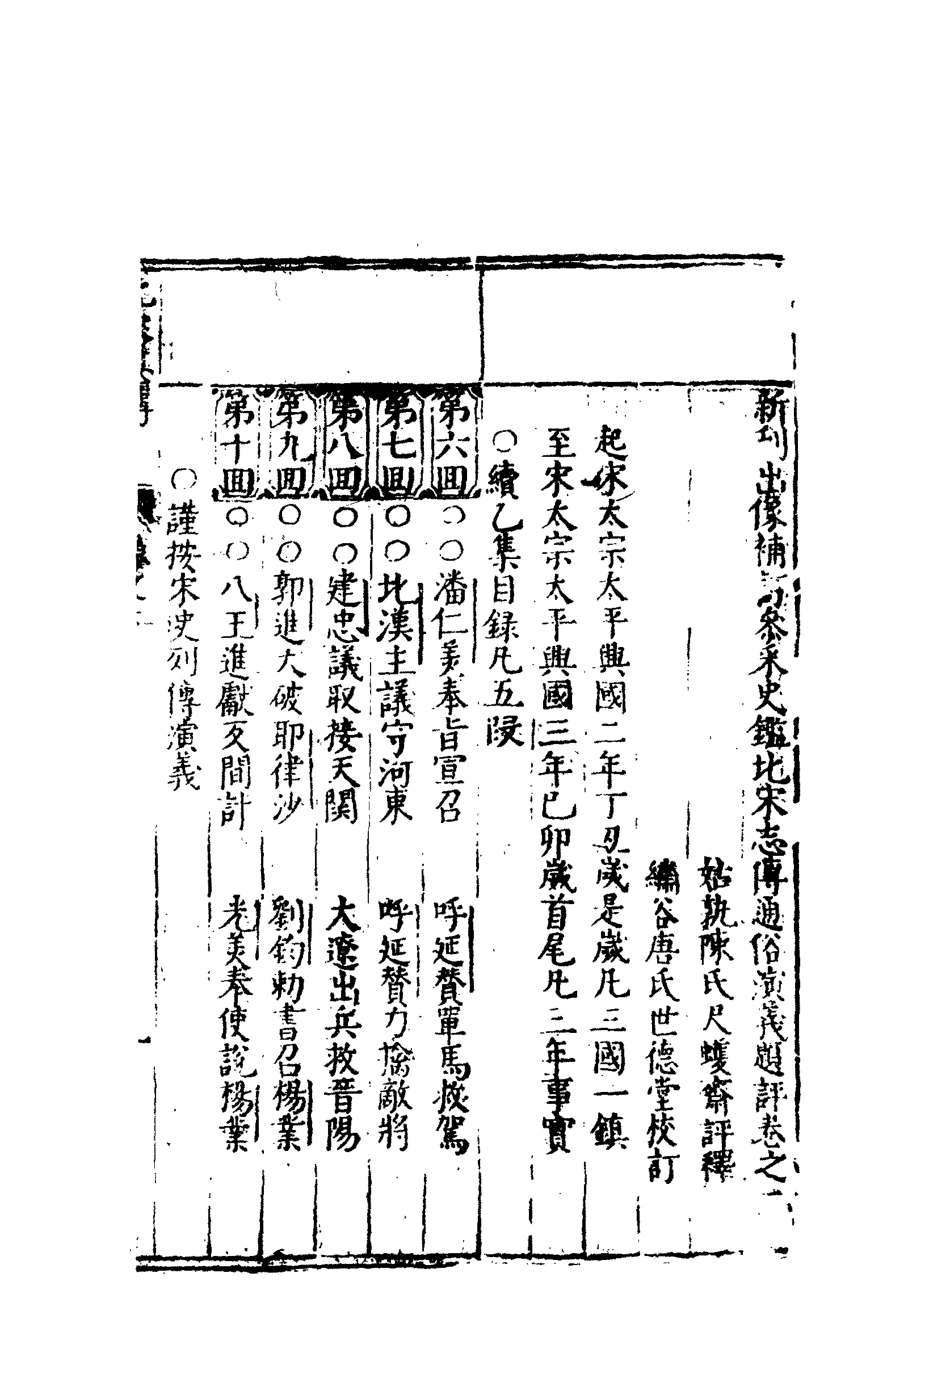 新刊出像補訂參采史鑑北宋志傳通俗演義題評卷之二
姑孰陳氏尺蠖齋評釋
繡谷唐氏世德堂校訂
起宋太宗太平興國二年丁丑歲是歲凡三國一鎮
至宋太宗太平興國三年己卯歲首尾凡三年事實
○續乙集目録凡五段
第六囬○○潘仁美奉旨宣召 呼延賛單馬救駕
第七囬○○北漢主議守河東 呼延賛力擒敵將
第八囬○○建忠議取接天関 大遼出兵救晉陽
第九囬○○郭進大破耶律沙 劉鈞勅書召楊業
第十囬○○八王進獻反間計 光美奉使說楊業
○謹按宋史列傳演義